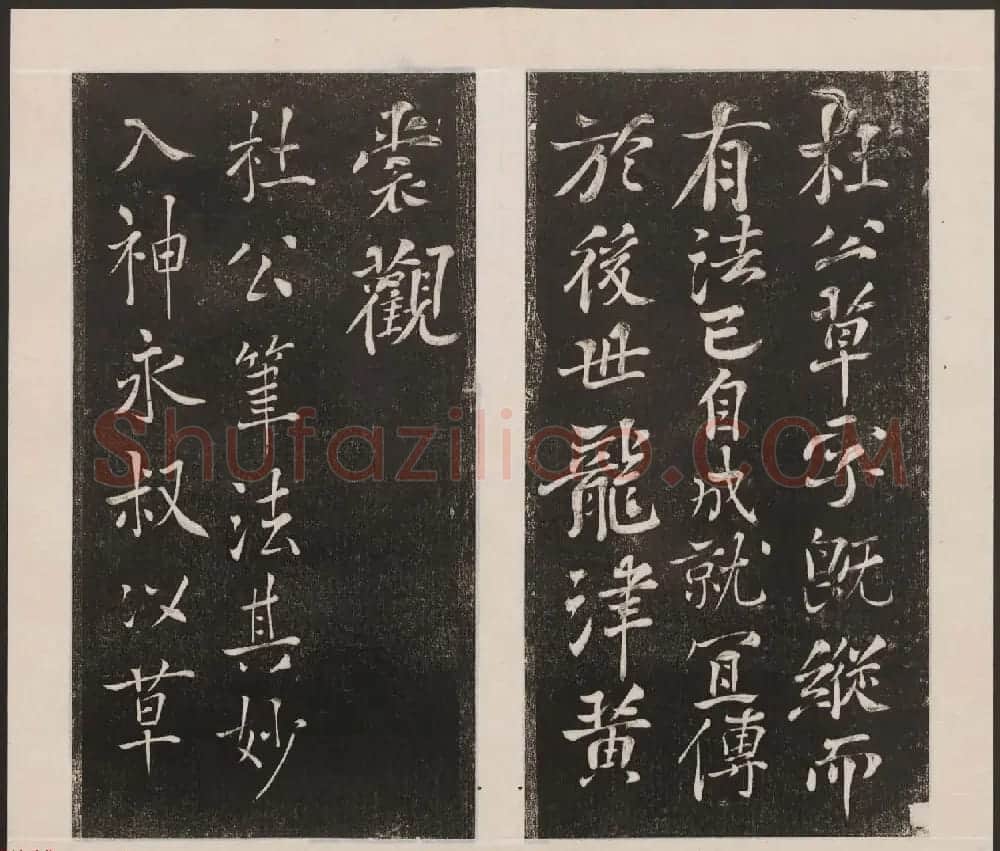 杜公草既縱而
有法已自成就冝傳
於後世龍津黃
裳觀
杜公筆法其妙
入神永叔以草
Shufaziliao.COM